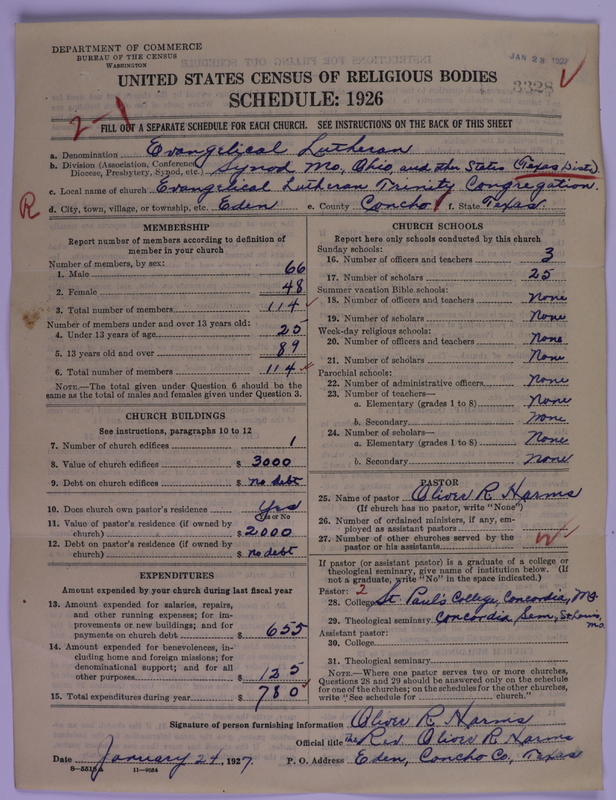 DEPARTMENT OF COMMERCE
BUREAU OF THE CENSUS
WASHINGTON
JAN 28 1927
3328
UNITED STATES CENSUS OF RELIGIOUS BODIES
SCHEDULE: 1926
2-1
FILL OUT A SEPARATE SCHEDULE FOR EACH CHURCH. SEE INSTRUCTIONS ON THE BACK OF THIS SHEET
a. Denomination Evangelical Lutheran
b. Division (Association, Conference, Diocese, Presbytery, Synod, etc.) Synod Mo, Ohio, and other States (Texas Dist)
c. Local name of church Evangelical Lutheran Trinity Congregation.
R d. City, town, village, or township, etc. Eden e. County Concho f. State Texas
MEMBERSHIP
Report number of members according to definition of member in your church
Number of members, by sex:
1. Male 66
2. Female 48
3. Total number of members 114
Number of members under and over 13 years old:
4. Under 13 years of age 25
5. 13 years old and over 89
6. Total number of members 114
NOTE.—The total given under Question 6 should be the same as the total of males and females given under Question 3.
CHURCH BUILDINGS
See instructions, paragraphs 10 to 12
7. Number of church edifices 1
8. Value of church edifices $ 3000
9. Debt on church edifices $ no debt
10. Does church own pastor's residence Yes
Yes or No
11. Value of pastor's residence (if owned by church) $ 2000
12. Debt on pastor's residence (if owned by church) $ no debt
EXPENDITURES
Amount expended by your church during last fiscal year
13. Amount expended for salaries, repairs, and other running expenses; for improvements or new buildings; and for payments on church debt $ 655
14. Amount expended for benevolences, including home and foreign missions; for denominational support; and for all other purposes $ 125
15. Total expenditures during year $ 780
CHURCH SCHOOLS
Report here only schools conducted by this church
Sunday schools:
16. Number of officers and teachers 3
17. Number of scholars 25
Summer vacation Bible schools:
18. Number of officers and teachers None
19. Number of scholars None
Week-day religious schools:
20. Number of officers and teachers None
21. Number of scholars None
Parochial schools:
22. Number of administrative officers None
23. Number of teachers—
a. Elementary (grades 1 to 8) None
b. Secondary None
24. Number of scholars—
a. Elementary (grades 1 to 8) None
b. Secondary None
PASTOR
25. Name of pastor Oliver R Harms
(If church has no pastor, write "None")
26. Number of ordained ministers, if any, employed as assistant pastors
27. Number of other churches served by the pastor or his assistants
If pastor (or assistant pastor) is a graduate of a college or theological seminary, give name of institution below. (If not a graduate, write "No" in the space indicated.)
Pastor: 2
28. College St. Paul's College, Concordia, Mo.
29. Theological seminary Concordia Sem., St Louis, Mo.
Assistant pastor:
30. College
31. Theological seminary
NOTE.—Where one pastor serves two or more churches, Questions 28 and 29 should be answered only on the schedule for one of the churches; on the schedules for the other churches, write "See schedule for church."
Signature of person furnishing information Oliver R Harms
Official title The Rev. Oliver R Harms
Date January 24, 1927. P. O. Address Eden, Concho Co, Texas
8—5518a 11—9054